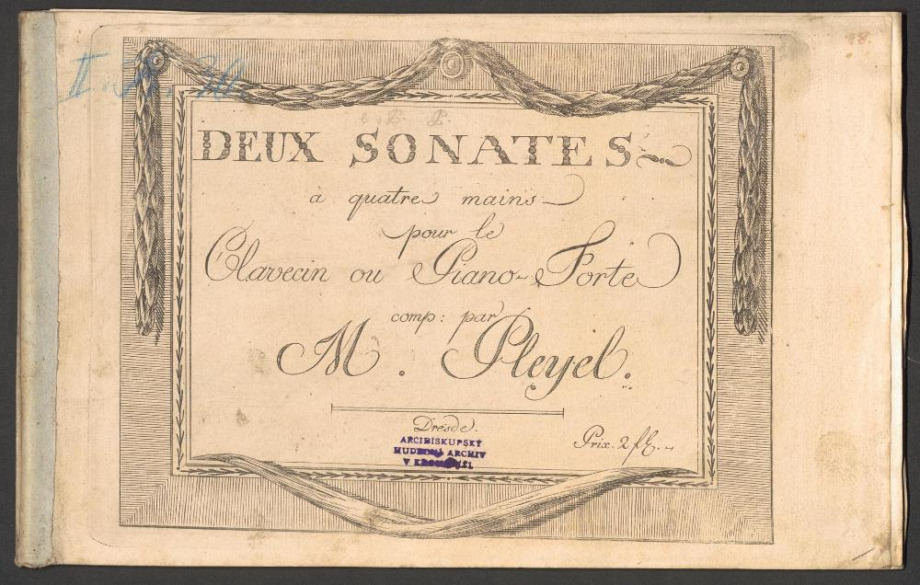 98.
DEUX SONATES
à quatre mains
pour le
Clavecin ou Piano-Forte
comp: par
M. Pleyel.
Dresde.
Prix. 2 fl.
ARCIBISKUPSKÝ
HUDEBNÍ ARCHIV
V KROMĚŘÍŽI